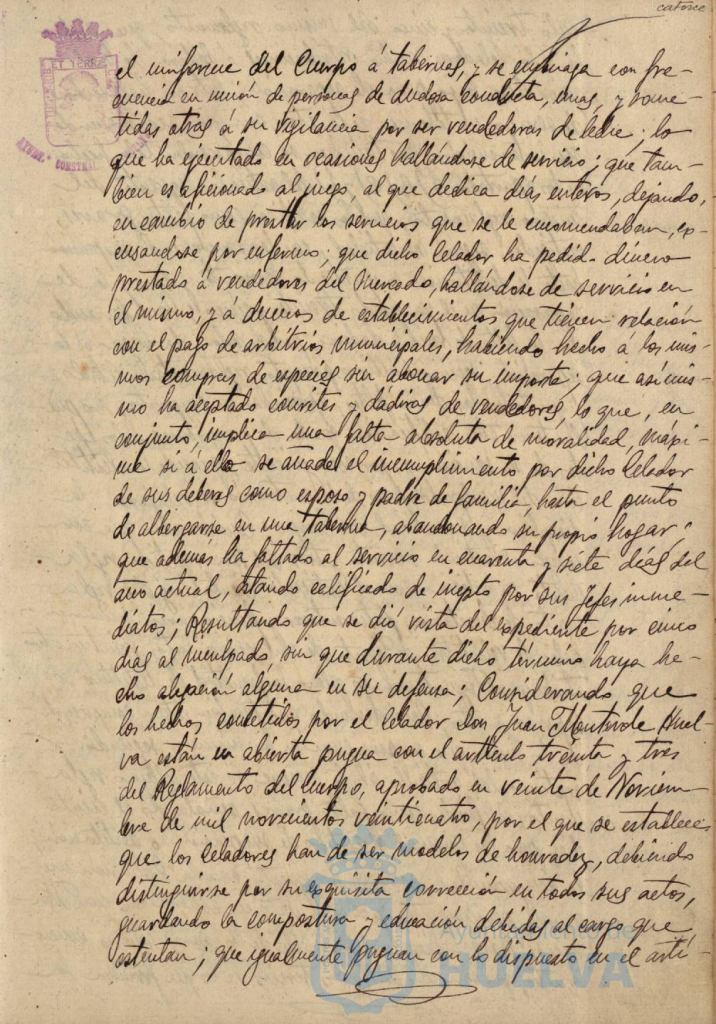 catorce
el uniforme del Cuerpo á tabernas, y se embriaga con fre-
cuencia en unión de personas de dudosa conducta, unas, y some-
tidas otras á su vigilancia por ser vendedoras de leche; lo
que ha ejecutado en ocasiones hallándose de servicio; que tam-
bien es aficionado al juego, al que dedica dias enteros, dejando,
en cambio de prestar los servicios que se le encomendaban, ex-
cusandose por enfermo; que dicho Celador ha pedido dinero
prestado á vendedores del Mercado, hallándose de servicio en
el mismo, y á dueños de establecimientos que tienen relación
con el pago de arbitrios municipales, habiendo hecho á los mis-
mos compras de especies sin abonar su importe; que asimis-
mo ha aceptado convites y dádivas de vendedores, lo que, en
conjunto, implica una falta absoluta de moralidad, máxi-
me si á ello se añade el incumplimiento por dicho Celador
de sus deberes como esposo y padre de familia, hasta el punto
de albergarse en una taberna, abandonando su propio hogar;
que ademas ha faltado al servicio en cuarenta y siete dias del
año actual, estando calificado de inepto por sus Jefes inme-
diatos; Resultando que se dió vista del expediente por cinco
dias al inculpado, sin que durante dicho término haya he-
cho alegación alguna en su defensa; Considerando que
los hechos cometidos por el celador Don Juan Monteverde Huel-
va están en abierta pugna con el artículo treinta y tres
del Reglamento del Cuerpo, aprobado en veinte de Noviem-
bre de mil novecientos veinticuatro, por el que se establece
que los Celadores han de ser modelos de honradez, debiendo
distinguirse por su exquisita corrección en todos sus actos,
guardando la compostura y educación debidas al cargo que
ostentan; que igualmente pugnan con lo dispuesto en el artí-
HUELVA